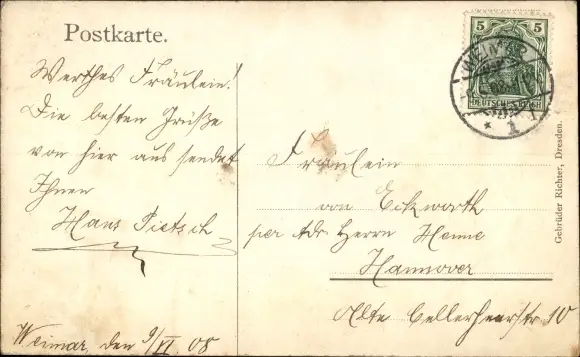 Postkarte.
Werthes Fräulein!
Die besten Grüße
von hier aus sendet
Ihnen
Hans Pietsch
Weimar, den 9/VI. 08
5 5
DEUTSCHES REICH
WEIMAR
* 1
Fräulein
von Eckwarth
per Adr. Herrn Henne
Hannover
Alte Cellerheerstr. 10
Gebrüder Richter, Dresden.